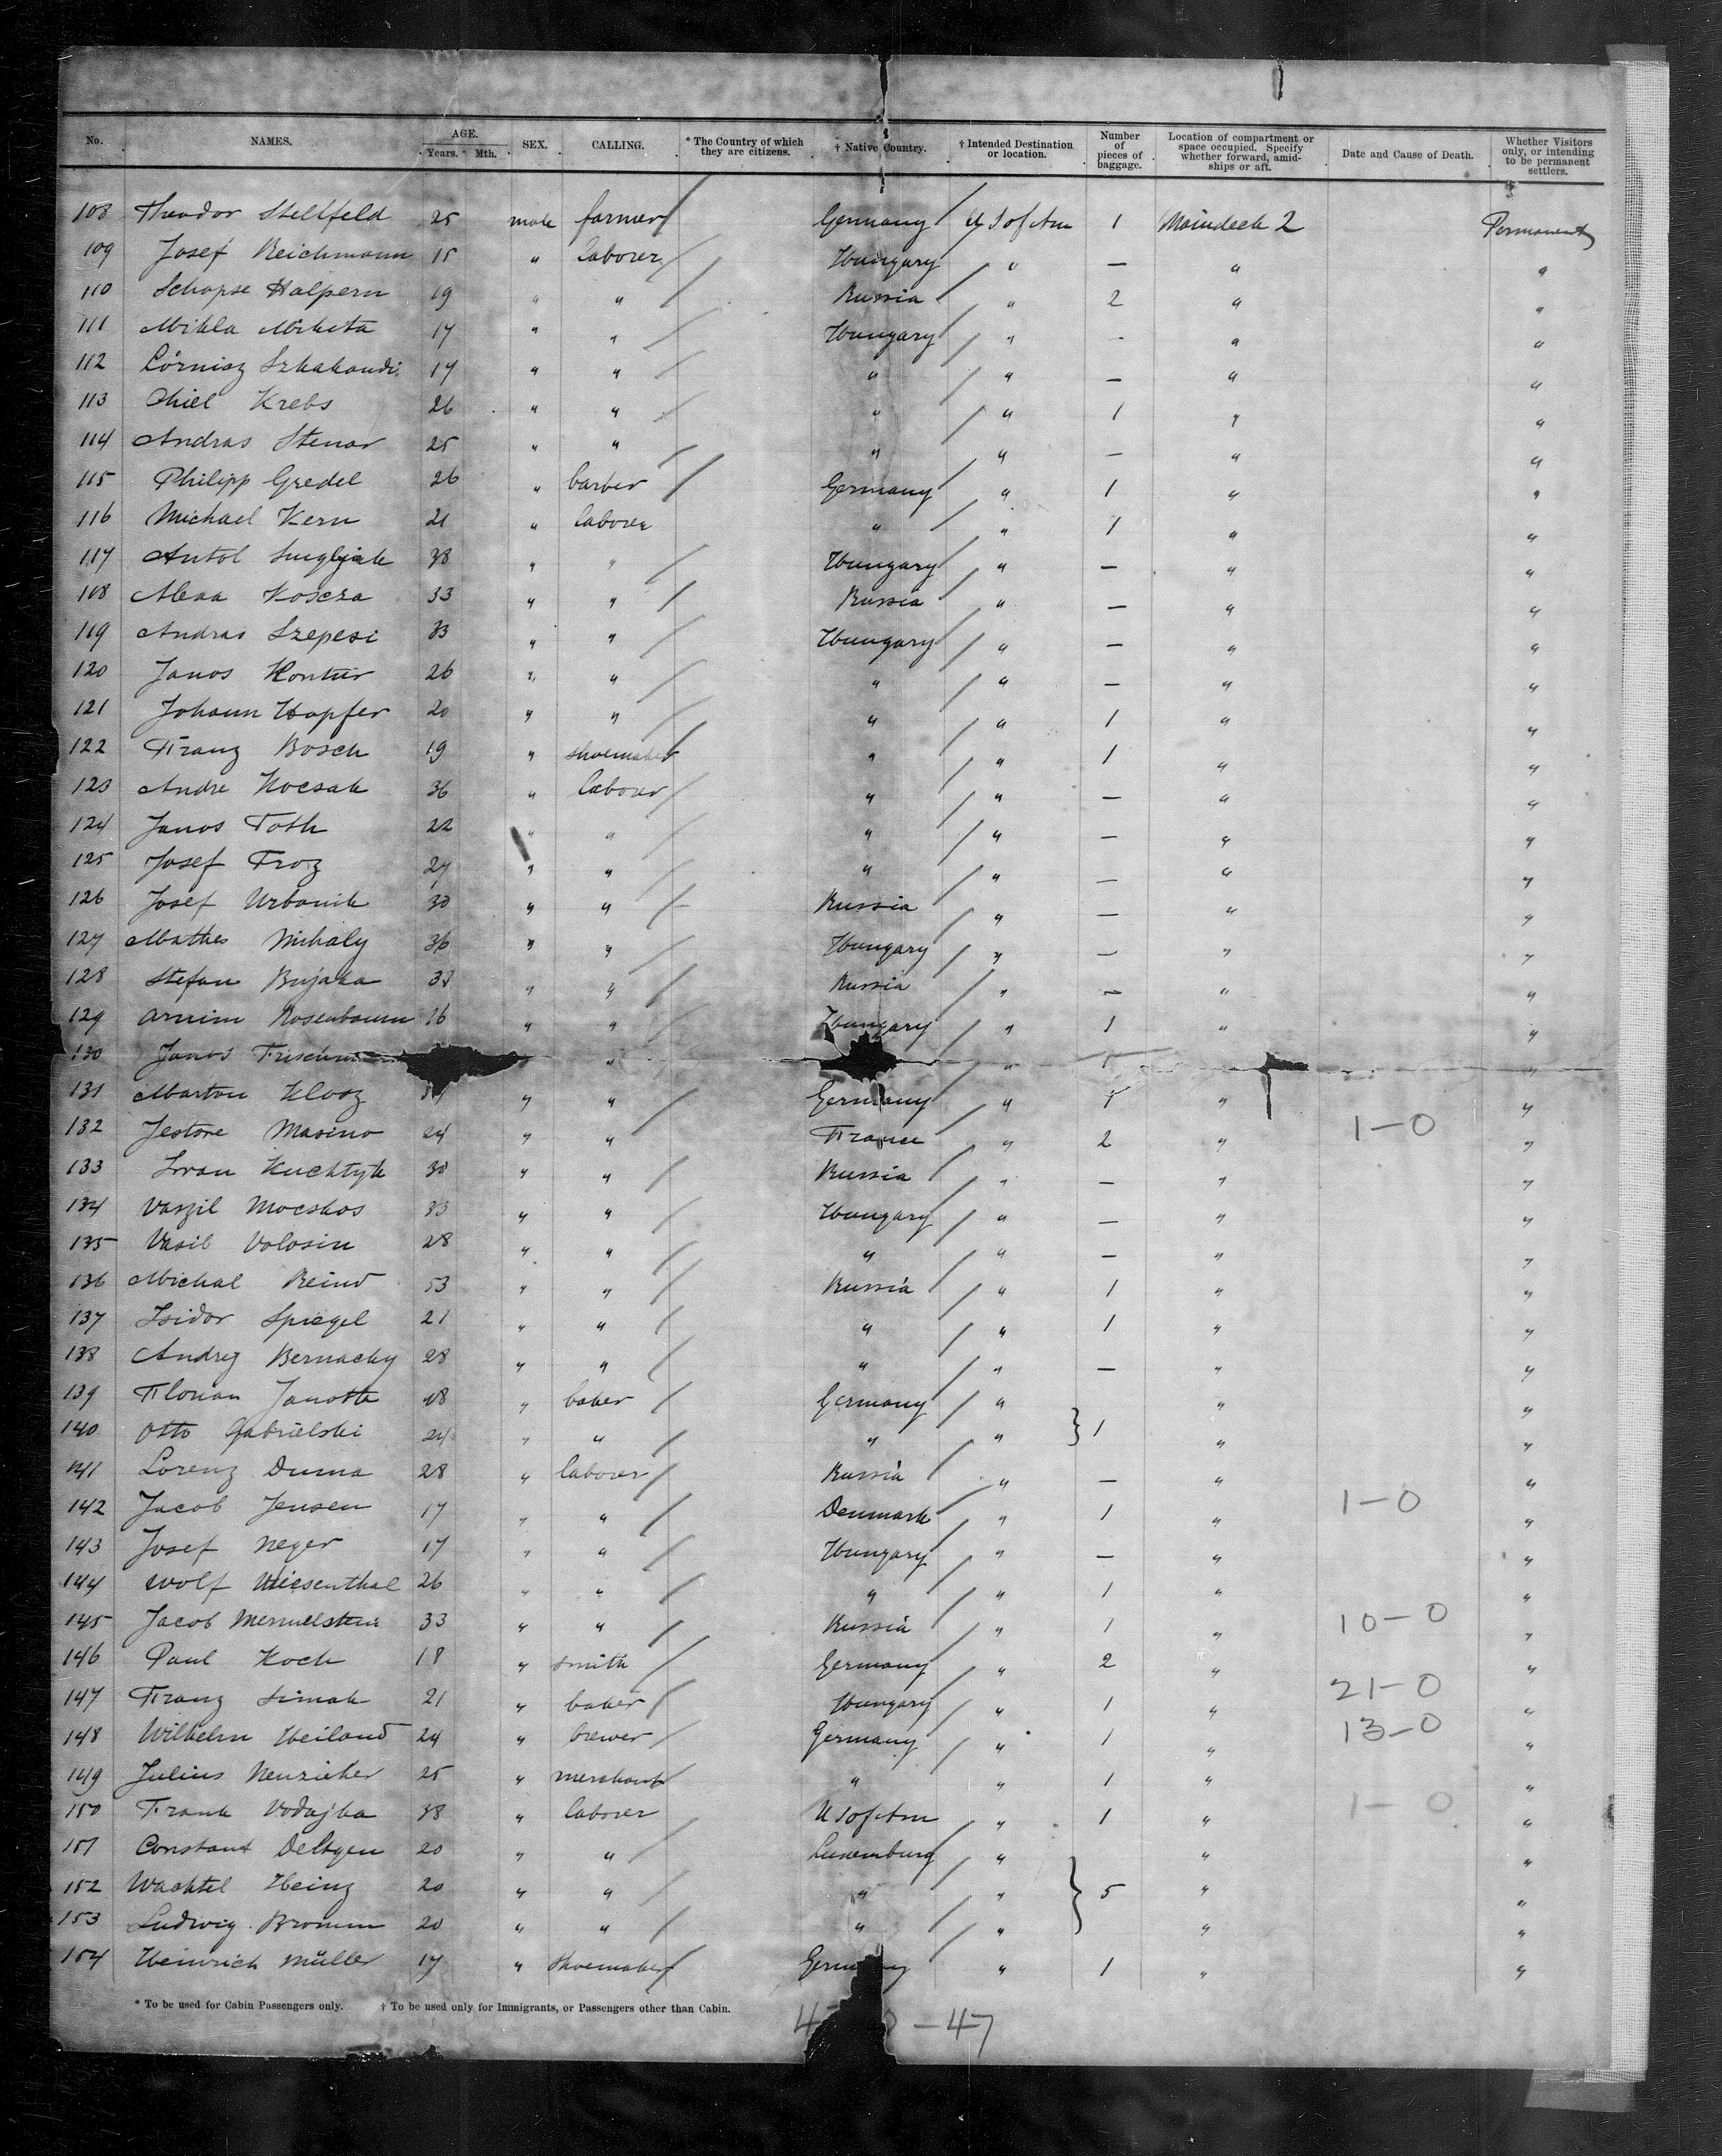 No. NAMES. AGE. Years. Mth. SEX. CALLING. * The Country of which they are citizens. † Native Country. † Intended Destination or location. Number of pieces of baggage. Location of compartment or space occupied. Specify whether forward, amidships or aft. Date and Cause of Death. Whether Visitors only, or intending to be permanent settlers.
108 Theodor Stellfeld 25 male farmer Germany U S of Am 1 Maindeck 2 Permanent
109 Josef Reichmann 15 " laborer Hungary " — " "
110 Schapse Halpern 19 " " Russia " 2 " "
111 Mihla Mikita 17 " " Hungary " - " "
112 17 " " " " — " "
113 Chiel Krebs 26 " " " " 1 " "
114 Andras Stenar 25 " " " " — " "
115 Philipp Gredel 26 " barber Germany " 1 " "
116 Michael Kern 21 " laborer " " 1 " "
117 Antol 38 " " Hungary " — " "
108 Koscza 33 " " Russia " — " "
119 Andras Szepesi 33 " " Hungary " — " "
120 Janos Kontur 26 " " " " — " "
121 Johann Hopfer 20 " " " " 1 " "
122 Franz Bosch 19 " shoemaker " " 1 " "
123 Andre Kocsak 36 " laborer " " — " "
124 Janos Toth 22 " " " " — " "
125 Josef Froz 27 " " " " — " "
126 Josef Urbanik 30 " " Russia " — " "
127 Mathes Mihaly 36 " " Hungary " — " "
128 Stefan Bujaka 38 " " Russia " — " "
129 Armin Rosenbaum 16 " " Hungary " 1 " "
130 Janos " " 1 "
131 Marton Klooz " " Germany " 1 " "
132 Jestore Masino 24 " " France " 2 " 1-0 "
133 Ivan Kuchtyk 30 " " Russia " — " "
134 Vaszil Mocskos 33 " " Hungary " — " "
135 Vasil Volosin 28 " " " " — " "
136 Michal Reind 53 " " Russia " 1 " "
137 Isidor Spiegel 21 " " " " 1 " "
138 Andrej Bernacky 28 " " " " — " "
139 Florian Janotta 48 " baker Germany " " "
140 Otto Gabrielski 24 " " " " } 1 " "
141 Lorenz Duma 28 " laborer Russia " — " "
142 Jacob Jensen 17 " " Denmark " 1 " 1-0 "
143 Josef Neger 17 " " Hungary " — " "
144 Wolf Wiesenthal 26 " " " " 1 " "
145 Jacob Mermelstein 33 " " Russia " 1 " 10-0 "
146 Paul Koch 18 " smith Germany " 2 " "
147 Franz Simak 21 " baker Hungary " 1 " 21-0 "
148 Wilhelm Heiland 24 " brewer Germany " 1 " 13-0 "
149 Julius Neuzieher 25 " merchant " " 1 " "
150 Frank Vodajka 38 " laborer U S of Am " 1 " 1-0 "
151 Constant Deltgen 20 " " Luxemburg " " "
152 Wachtel Heinz 20 " " " " } 5 " "
153 Ludwig Bromm 20 " " " " " "
154 Heinrich Müller 17 " shoemaker Germany " 1 " "
* To be used for Cabin Passengers only. † To be used only for Immigrants, or Passengers other than Cabin.
— 47